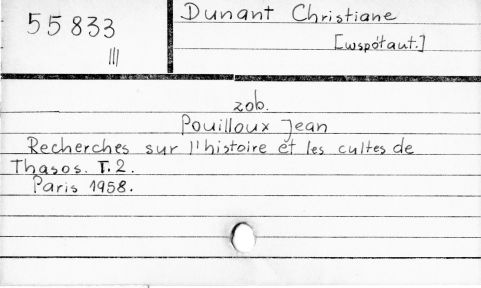 55833
III
Dunant Christiane
[współaut.]
zob.
Pouilloux Jean
Recherches sur l'histoire et les cultes de
Thasos. T. 2.
Paris 1958.